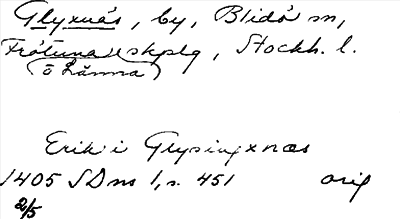 Glyxnäs, by, Blidö sn,
Frötuna o skplg, Stockh. l.
(o Länna)
Erik i Glysingxnæs
1405 SD ns 1, s. 451 orig
2/5